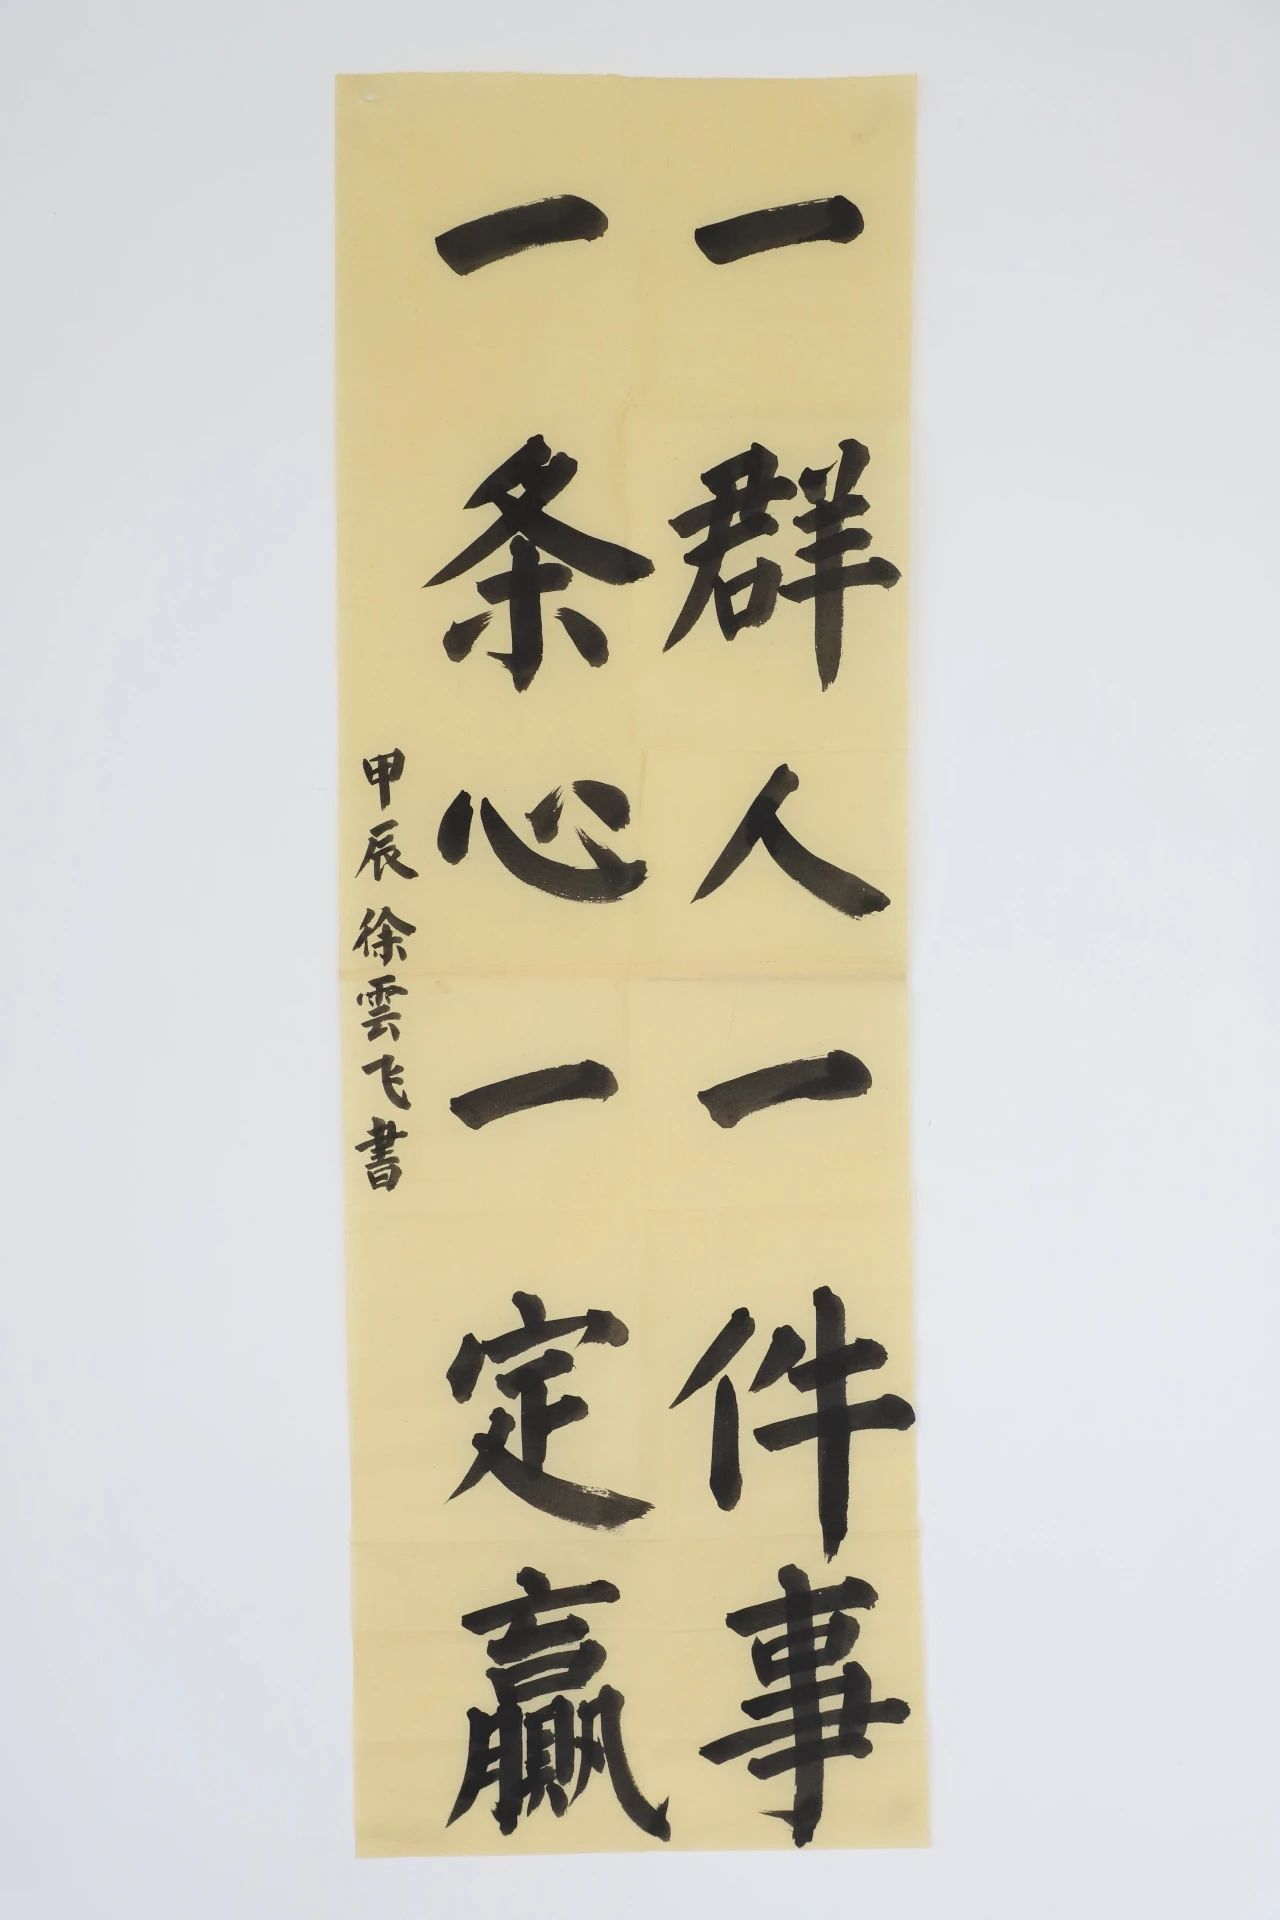 一群人一件事
一条心一定赢
甲辰徐雲飞書